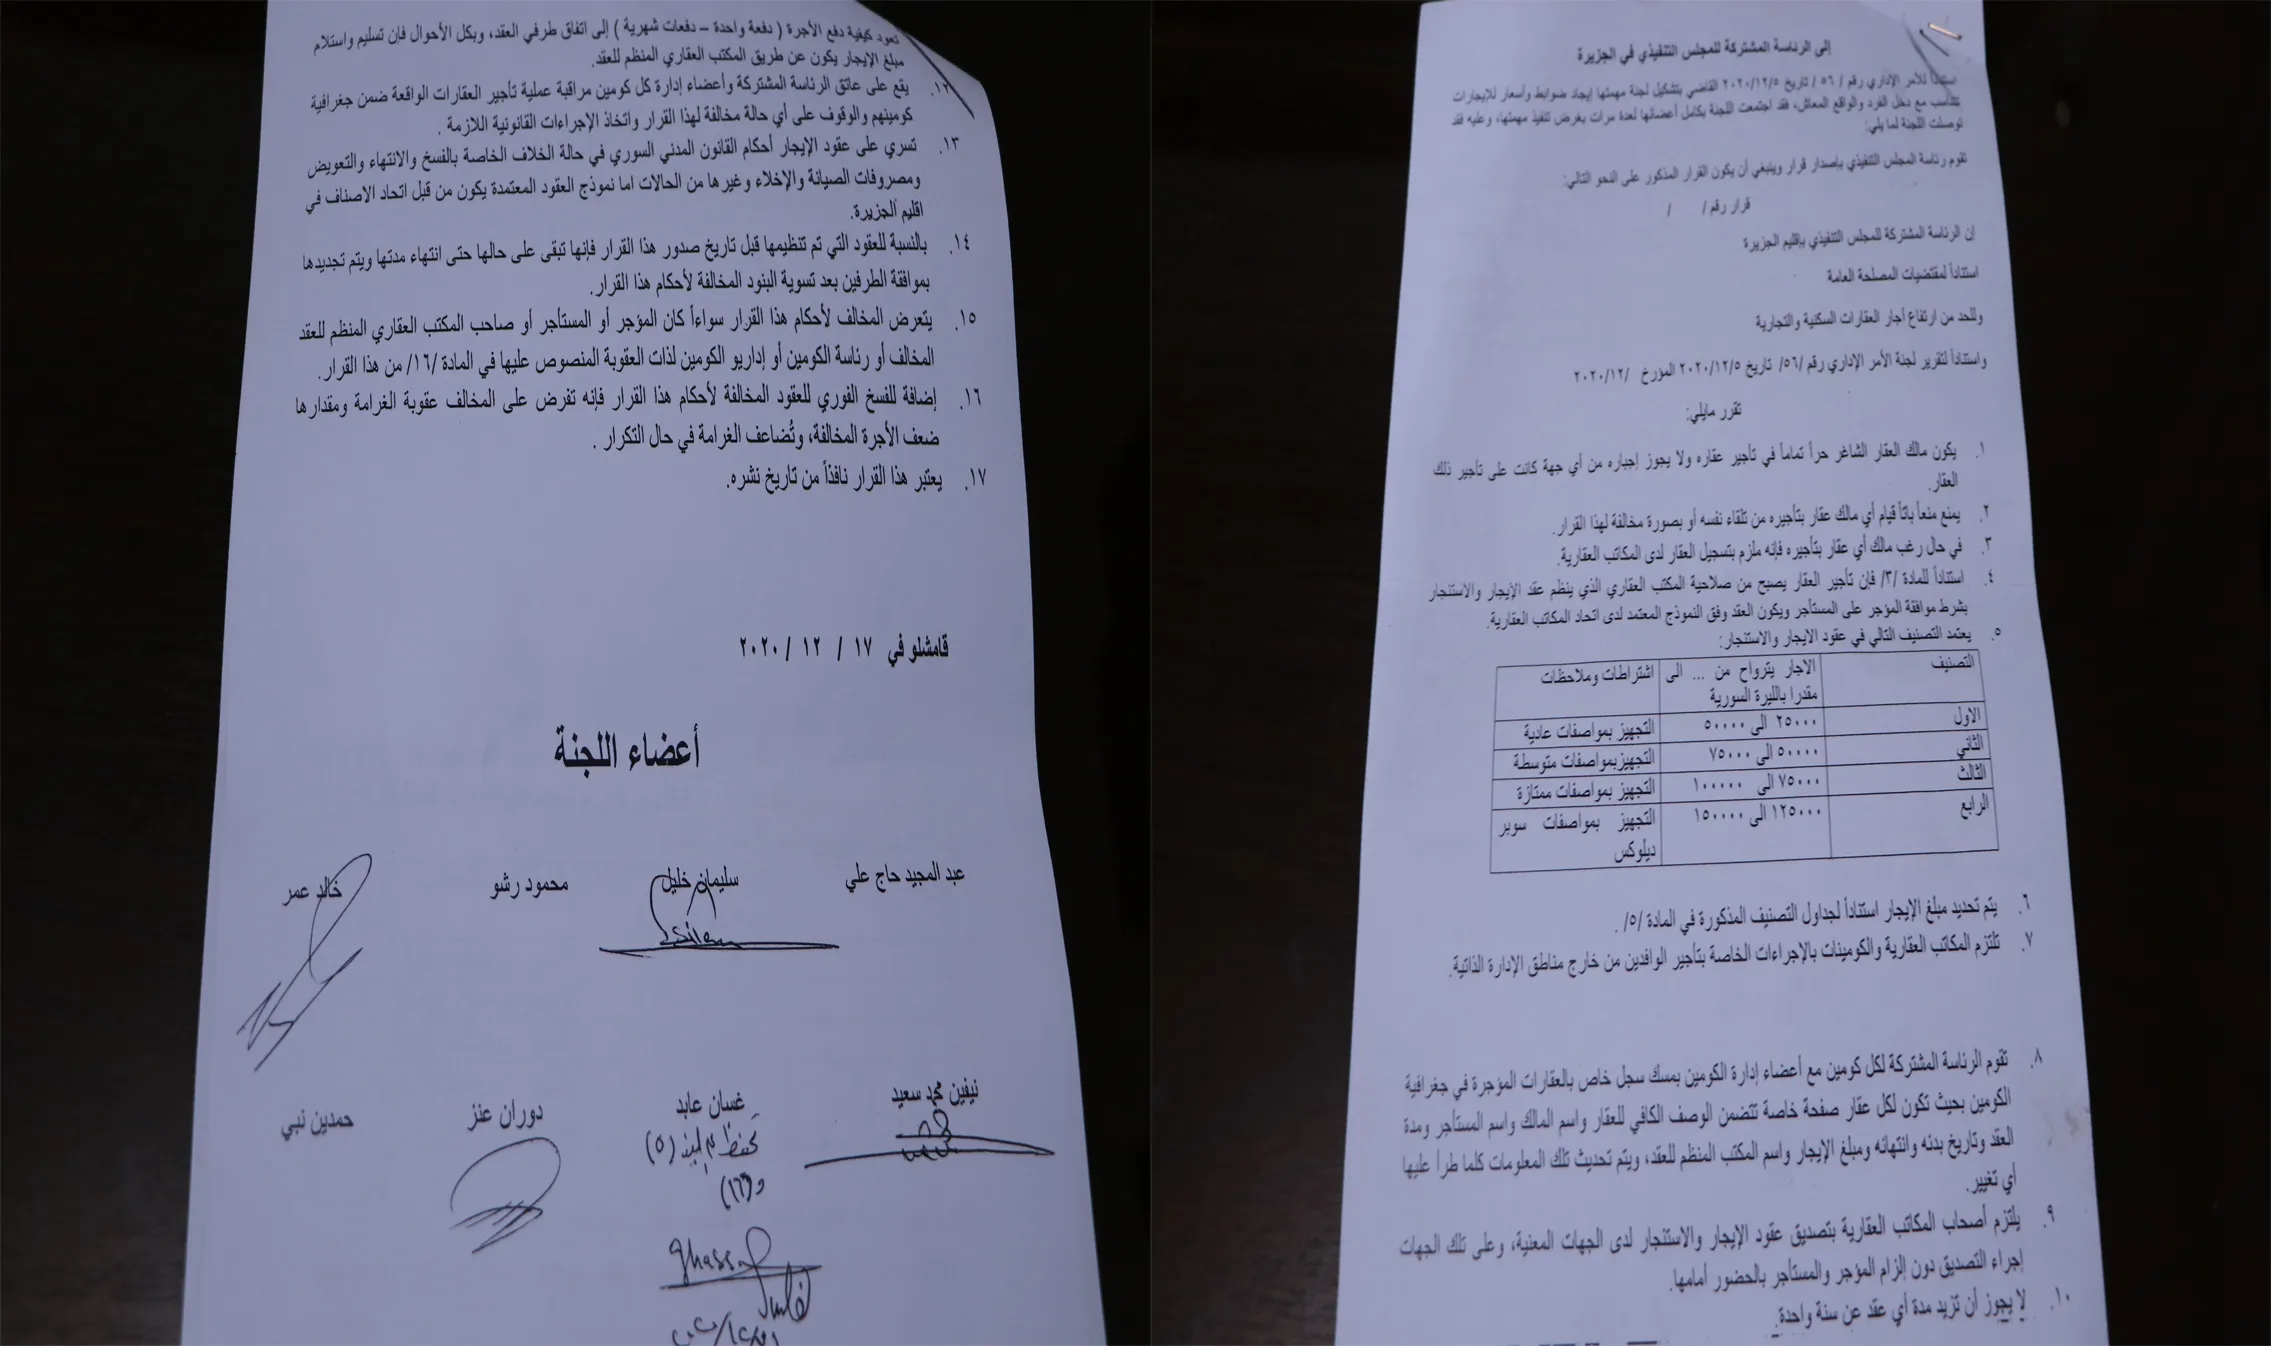 إلى الرئاسة المشتركة للمجلس التنفيذي في الجزيرة
استناداً للأمر الإداري رقم / ٥٦ / تاريخ ٢٠٢٠/١٢/٥ القاضي بتشكيل لجنة مهمتها إيجاد ضوابط وأسعار للايجارات
تتناسب مع دخل الفرد والواقع المعاش، فقد اجتمعت اللجنة بكامل أعضائها لعدة مرات بغرض تنفيذ مهمتها، وعليه فقد
توصلت اللجنة لما يلي:
تقوم رئاسة المجلس التنفيذي بإصدار قرار وينبغي أن يكون القرار المذكور على النحو التالي:
قرار رقم /       /
إن الرئاسة المشتركة للمجلس التنفيذي بإقليم الجزيرة
استناداً لمقتضيات المصلحة العامة
وللحد من ارتفاع أجار العقارات السكنية والتجارية
واستناداً لتقرير لجنة الأمر الإداري رقم /٥٦/ تاريخ ٢٠٢٠/١٢/٥ المؤرخ   /٢٠٢٠/١٢
تقرر مايلي:
١. يكون مالك العقار الشاغر حراً تماماً في تأجير عقاره ولا يجوز إجباره من أي جهة كانت على تأجير ذلك
العقار.
٢. يمنع منعاً باتاً قيام أي مالك عقار بتأجيره من تلقاء نفسه أو بصورة مخالفة لهذا القرار.
٣. في حال رغب مالك أي عقار بتأجيره فإنه ملزم بتسجيل العقار لدى المكاتب العقارية.
٤. استناداً للمادة /٣/ فإن تأجير العقار يصبح من صلاحية المكتب العقاري الذي ينظم عقد الإيجار والاستئجار
بشرط موافقة المؤجر على المستأجر ويكون العقد وفق النموذج المعتمد لدى اتحاد المكاتب العقارية.
٥. يعتمد التصنيف التالي في عقود الايجار والاستئجار:
التصنيف | الاجار يترواح من ... الى | اشتراطات وملاحظات
مقدرا بالليرة السورية
الاول | ٢٥٠٠٠ الى ٥٠٠٠٠ | التجهيز بمواصفات عادية
الثاني | ٥٠٠٠٠ الى ٧٥٠٠٠ | التجهيزبمواصفات متوسطة
الثالث | ٧٥٠٠٠ الى ١٠٠٠٠٠ | التجهيز بمواصفات ممتازة
الرابع | ١٢٥٠٠٠ الى ١٥٠٠٠٠ | التجهيز بمواصفات سوبر
ديلوكس
٦. يتم تحديد مبلغ الإيجار استناداً لجداول التصنيف المذكورة في المادة /٥/ .
٧. تلتزم المكاتب العقارية والكومينات بالإجراءات الخاصة بتأجير الوافدين من خارج مناطق الإدارة الذاتية.
٨. تقوم الرئاسة المشتركة لكل كومين مع أعضاء إدارة الكومين بمسك سجل خاص بالعقارات المؤجرة في جغرافية
الكومين بحيث تكون لكل عقار صفحة خاصة تتضمن الوصف الكافي للعقار واسم المالك واسم المستأجر ومدة
العقد وتاريخ بدئه وانتهائه ومبلغ الإيجار واسم المكتب المنظم للعقد، ويتم تحديث تلك المعلومات كلما طرأ عليها
أي تغيير.
٩. يلتزم أصحاب المكاتب العقارية بتصديق عقود الإيجار والاستئجار لدى الجهات المعنية، وعلى تلك الجهات
إجراء التصديق دون إلزام المؤجر والمستأجر بالحضور أمامها.
١٠. لا يجوز أن تزيد مدة أي عقد عن سنة واحدة.
تعود كيفية دفع الأجرة ( دفعة واحدة – دفعات شهرية ) إلى اتفاق طرفي العقد، وبكل الأحوال فإن تسليم واستلام
مبلغ الإيجار يكون عن طريق المكتب العقاري المنظم للعقد.
١٢. يقع على عاتق الرئاسة المشتركة وأعضاء إدارة كل كومين مراقبة عملية تأجير العقارات الواقعة ضمن جغرافية
كومينهم والوقوف على أي حالة مخالفة لهذا القرار واتخاذ الإجراءات القانونية اللازمة .
١٣. تسري على عقود الإيجار أحكام القانون المدني السوري في حالة الخلاف الخاصة بالفسخ والانتهاء والتعويض
ومصروفات الصيانة والإخلاء وغيرها من الحالات اما نموذج العقود المعتمدة يكون من قبل اتحاد الاصناف في
اقليم الجزيرة.
١٤. بالنسبة للعقود التي تم تنظيمها قبل تاريخ صدور هذا القرار فإنها تبقى على حالها حتى انتهاء مدتها ويتم تجديدها
بموافقة الطرفين بعد تسوية البنود المخالفة لأحكام هذا القرار.
١٥. يتعرض المخالف لأحكام هذا القرار سواءاً كان المؤجر أو المستأجر أو صاحب المكتب العقاري المنظم للعقد
المخالف أو رئاسة الكومين أو إداريو الكومين لذات العقوبة المنصوص عليها في المادة /١٦/ من هذا القرار.
١٦. إضافة للفسخ الفوري للعقود المخالفة لأحكام هذا القرار فإنه تفرض على المخالف عقوبة الغرامة ومقدارها
ضعف الأجرة المخالفة، وتُضاعف الغرامة في حال التكرار .
١٧. يعتبر هذا القرار نافذاً من تاريخ نشره.
قامشلو في ١٧ / ١٢ / ٢٠٢٠
أعضاء اللجنة
عبد المجيد حاج علي سليمان خليل محمود رشو خالد عمر
نيفين محمد سعيد غسان عابد دوران عنز حمدين نبي
(٥)
و(١٦)
ghassa